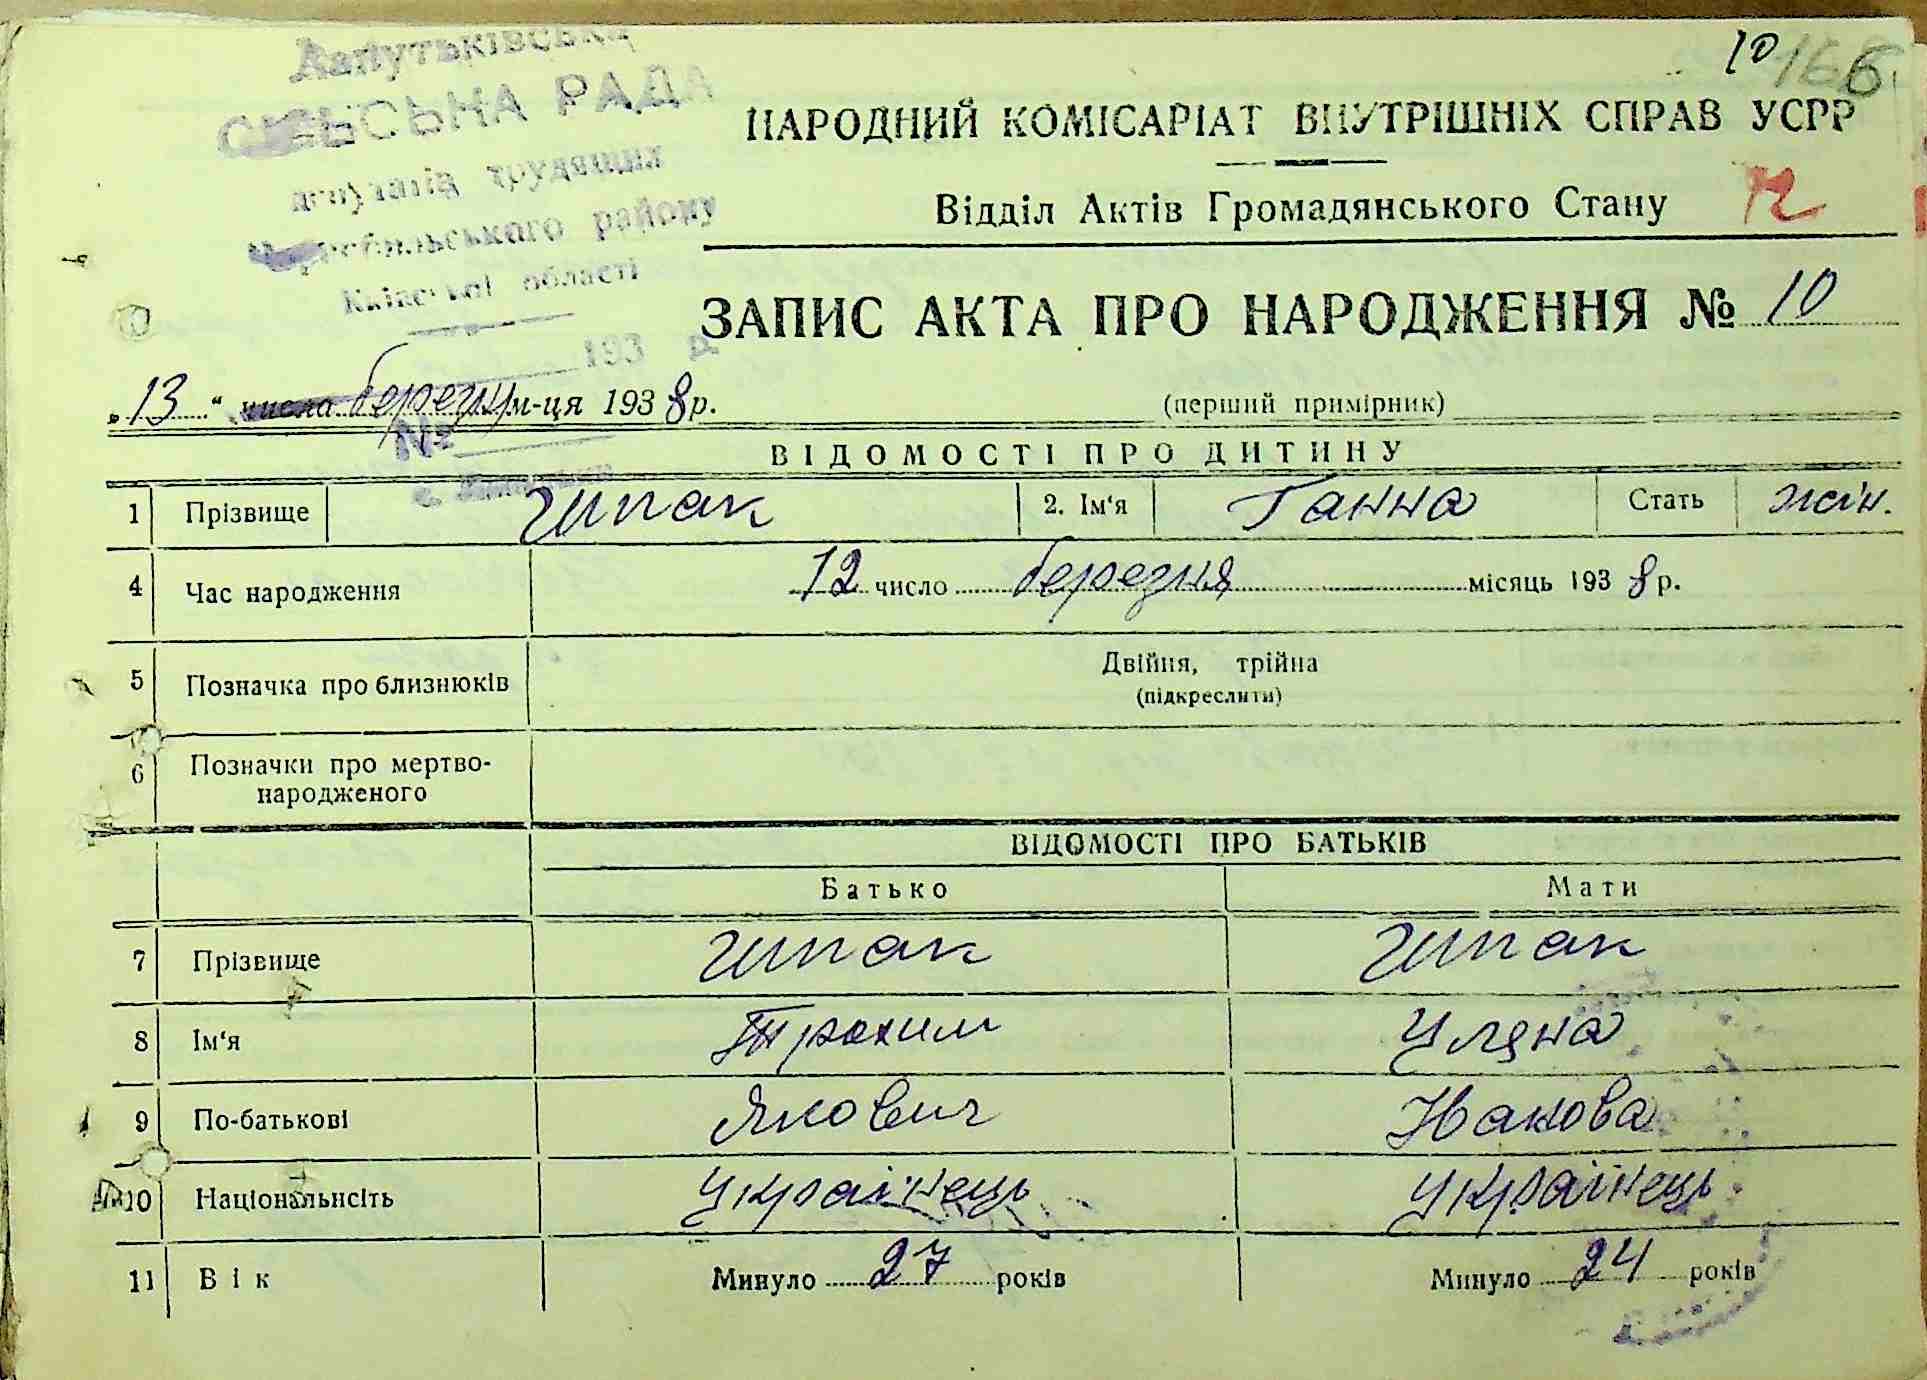 10 166
Лапутьківська
СІЛЬСЬКА РАДА
депутатів трудящих
Чорнобильського району
Київської області
193 р.
№
НАРОДНИЙ КОМІСАРІАТ ВНУТРІШНІХ СПРАВ УСРР
Відділ Актів Громадянського Стану 72
ЗАПИС АКТА ПРО НАРОДЖЕННЯ № 10
„13“ числа березня м-ця 1938 р. (перший примірник)
ВІДОМОСТІ ПРО ДИТИНУ
1 Прізвище Шпак 2. Ім‘я Ганна Стать жін.
4 Час народження 12 число березня місяць 1938 р.
5 Позначка про близнюків Двійня, трійна
(підкреслити)
6 Позначки про мертво-
народженого
ВІДОМОСТІ ПРО БАТЬКІВ
Батько Мати
7 Прізвище Шпак Шпак
8 Ім‘я Трохим Уляна
9 По-батькові Якович Ісакова
10 Національність Українець Українець
11 Вік Минуло 27 років Минуло 24 років